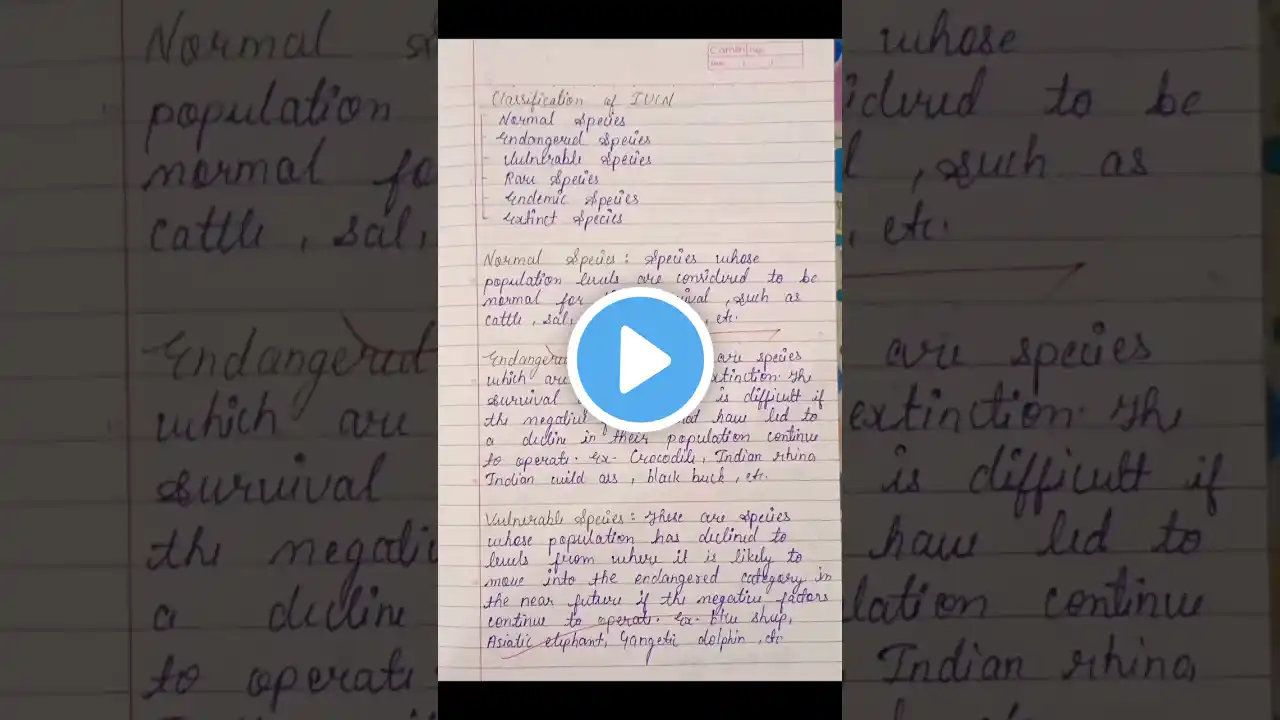 Classification of IUCN
Normal Species
Endangered Species
Vulnerable Species
Rare Species
Endemic Species
Extinct Species
Normal Species : Species whose
population levels are considered to be
normal for survival , such as
cattle , sal, , etc.
Endangered are species
which are extinction. The
survival is difficult if
the negative have led to
a decline in their population continue
to operate. Ex- Crocodile, Indian rhino,
Indian wild ass , black buck , etc.
Vulnerable Species : These are species
whose population has declined to
levels from where it is likely to
move into the endangered category in
the near future if the negative factors
continue to operate. Ex- blue sheep,
Asiatic elephant, Gangetic dolphin , etc